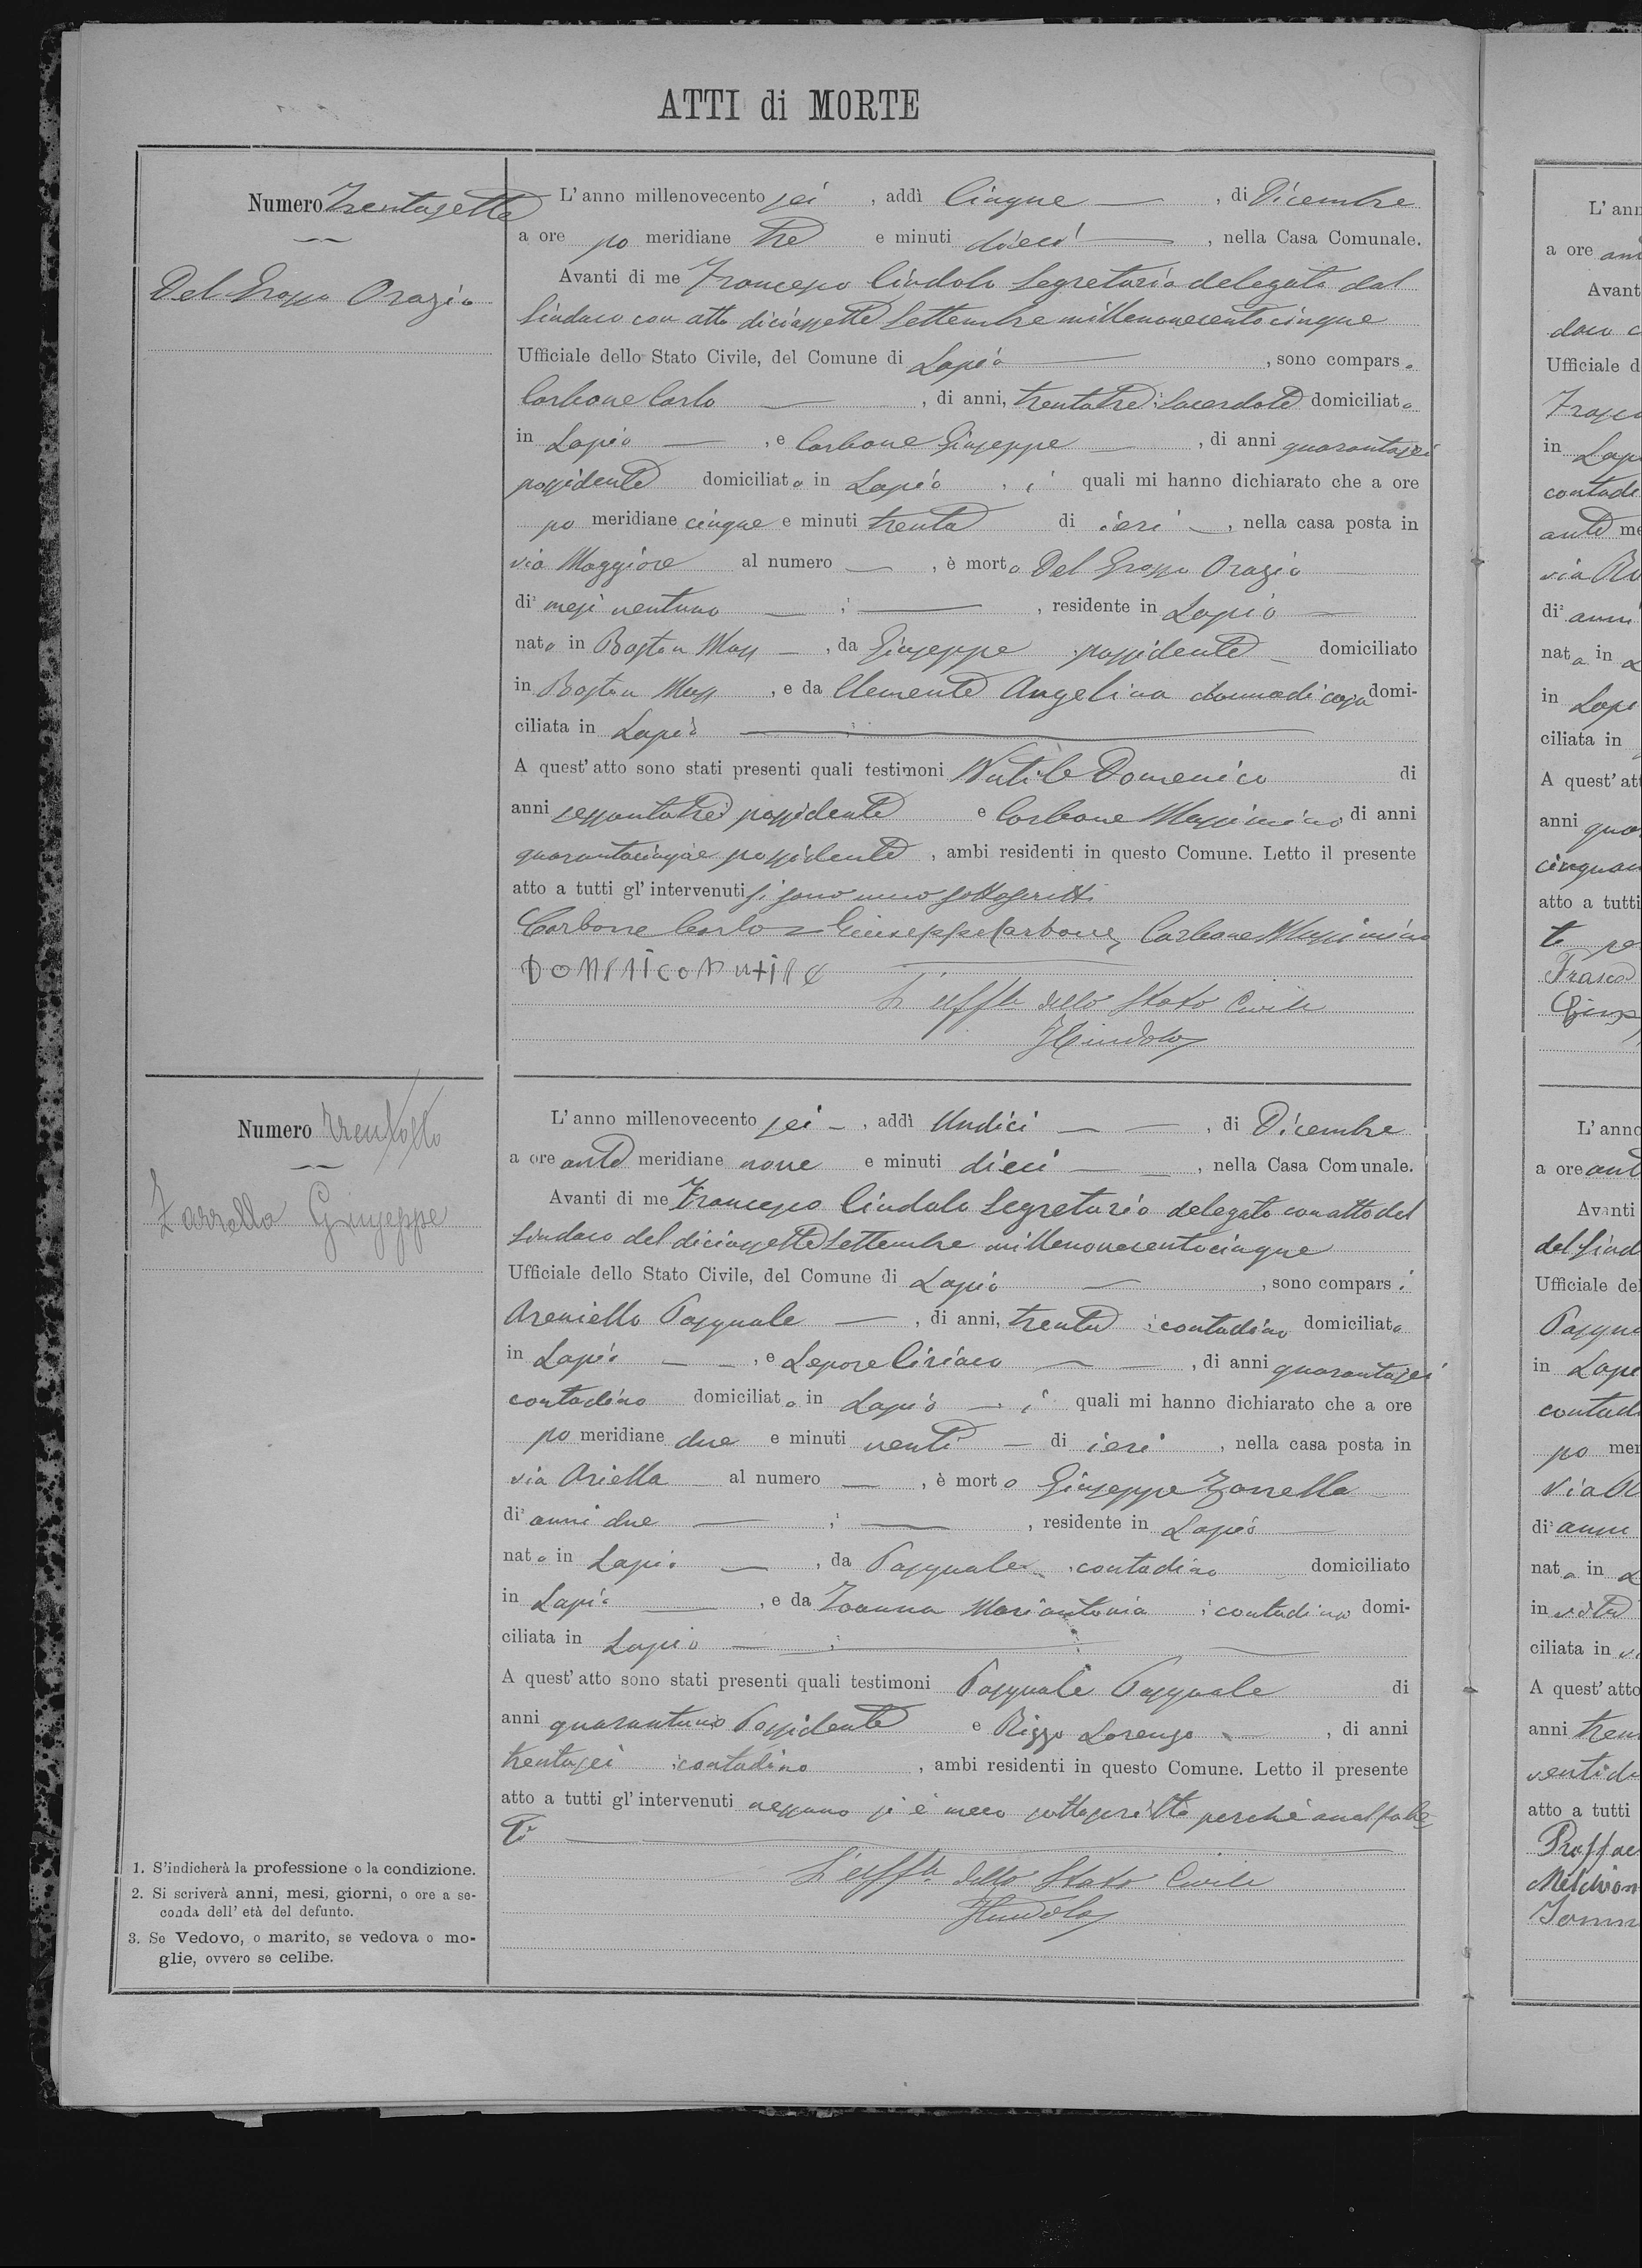 ATTI di MORTE
Numero Trentasette
Del Grosso Orazio
L'anno millenovecento sei , addì Cinque — , di Dicembre
a ore po meridiane tre e minuti dieci — , nella Casa Comunale.
Avanti di me Francesco Cindolo Segretario delegato dal
Sindaco con atto diciassette Settembre millenovecentocinque
Ufficiale dello Stato Civile, del Comune di Lapio — , sono compars
Carbone Carlo — , di anni, trentatre ; Sacerdote domiciliato
in Lapio — , e Carbone Giuseppe — , di anni quarantasei
possidente domiciliato in Lapio , i quali mi hanno dichiarato che a ore
po meridiane cinque e minuti trenta di ieri — , nella casa posta in
via Maggiore al numero — , è morto Del Grosso Orazio —
di² mesi ventuno — ; — , residente in Lapio —
nato in Boston Mass — , da Giuseppe ; possidente — domiciliato
in Boston Mass , e da Clemente Angelina donna di casa domi-
ciliata in Lapio — ; —
A quest'atto sono stati presenti quali testimoni Nutile Domenico di
anni sessantatre possidente e Carbone Massimino di anni
quarantacinque possidente , ambi residenti in questo Comune. Letto il presente
atto a tutti gl'intervenuti si sono meco sottoscritti
Carbone Carlo = Giuseppe Carbone, Carbone Massimino
Domenico Nutile
L'uffle dello Stato Civile
F Cindolo
Numero trentotto
Zarrella Giuseppe
L'anno millenovecento sei — , addì Undici — — , di Dicembre
a ore ante meridiane nove e minuti dieci — — , nella Casa Comunale.
Avanti di me Francesco Cindolo Segretario delegato con atto del
Sindaco del diciassette Settembre millenovecentocinque
Ufficiale dello Stato Civile, del Comune di Lapio — , sono comparsi
Areniello Pasquale — , di anni, trenta ; contadino domiciliato
in Lapio — — , e Lepore Ciriaco — — , di anni quarantasei
contadino domiciliato in Lapio — , i quali mi hanno dichiarato che a ore
po meridiane due e minuti venti — di ieri , nella casa posta in
via Ariella — al numero — , è morto Giuseppe Zarrella
di² anni due — ; — , residente in Lapio —
nato in Lapio — , da Pasquale — ; contadino domiciliato
in Lapio — , e da Ioanna Mariantonia ; contadina domi-
ciliata in Lapio — ; —
A quest'atto sono stati presenti quali testimoni Pasquale Pasquale di
anni quarantuno Possidente e Rizzo Lorenzo — , di anni
trentasei ; contadino , ambi residenti in questo Comune. Letto il presente
atto a tutti gl'intervenuti nessuno si è meco sottoscritto perchè analfabe-
ti —
L'uffle dello Stato Civile
F Cindolo
1. S'indicherà la professione o la condizione.
2. Si scriverà anni, mesi, giorni, o ore a se-
conda dell' età del defunto.
3. Se Vedovo, o marito, se vedova o mo-
glie, ovvero se celibe.
L' ann
a ore
Avant
Ufficiale d
in Lap
contadi
ante me
via
di² anni
nata in
in Lapi
ciliata in
A quest' att
anni
cinquan
atto a tutti
L' anno
a ore ant
Avanti
del Sind
Ufficiale del
Pasqua
in Lapi
contad
po mer
Via
di² anni
nata in
in
ciliata in
A quest' atto
anni tren
ventidu
atto a tutti
Raffae
Melchion